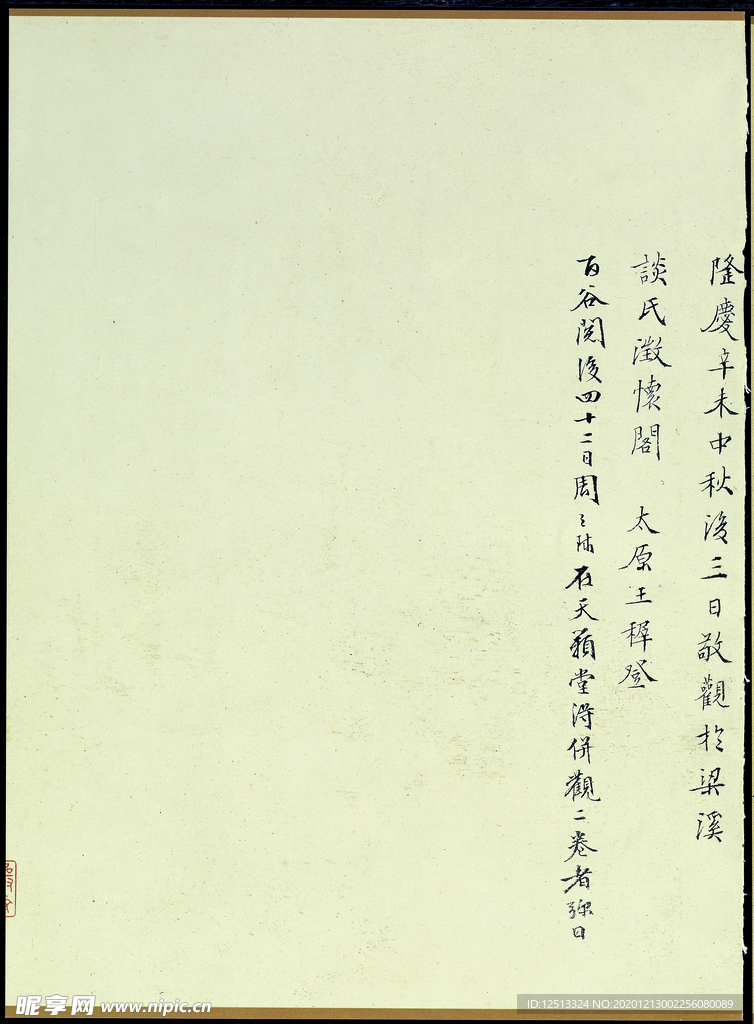 隆慶辛未中秋後三日敬觀於梁溪
談氏澂懷閣 太原王穉登
百谷閱後四十二日周天球在天籟堂得併觀二卷者彌日
昵享网 www.nipic.cn
ID:12513324 NO:20201213002256080089